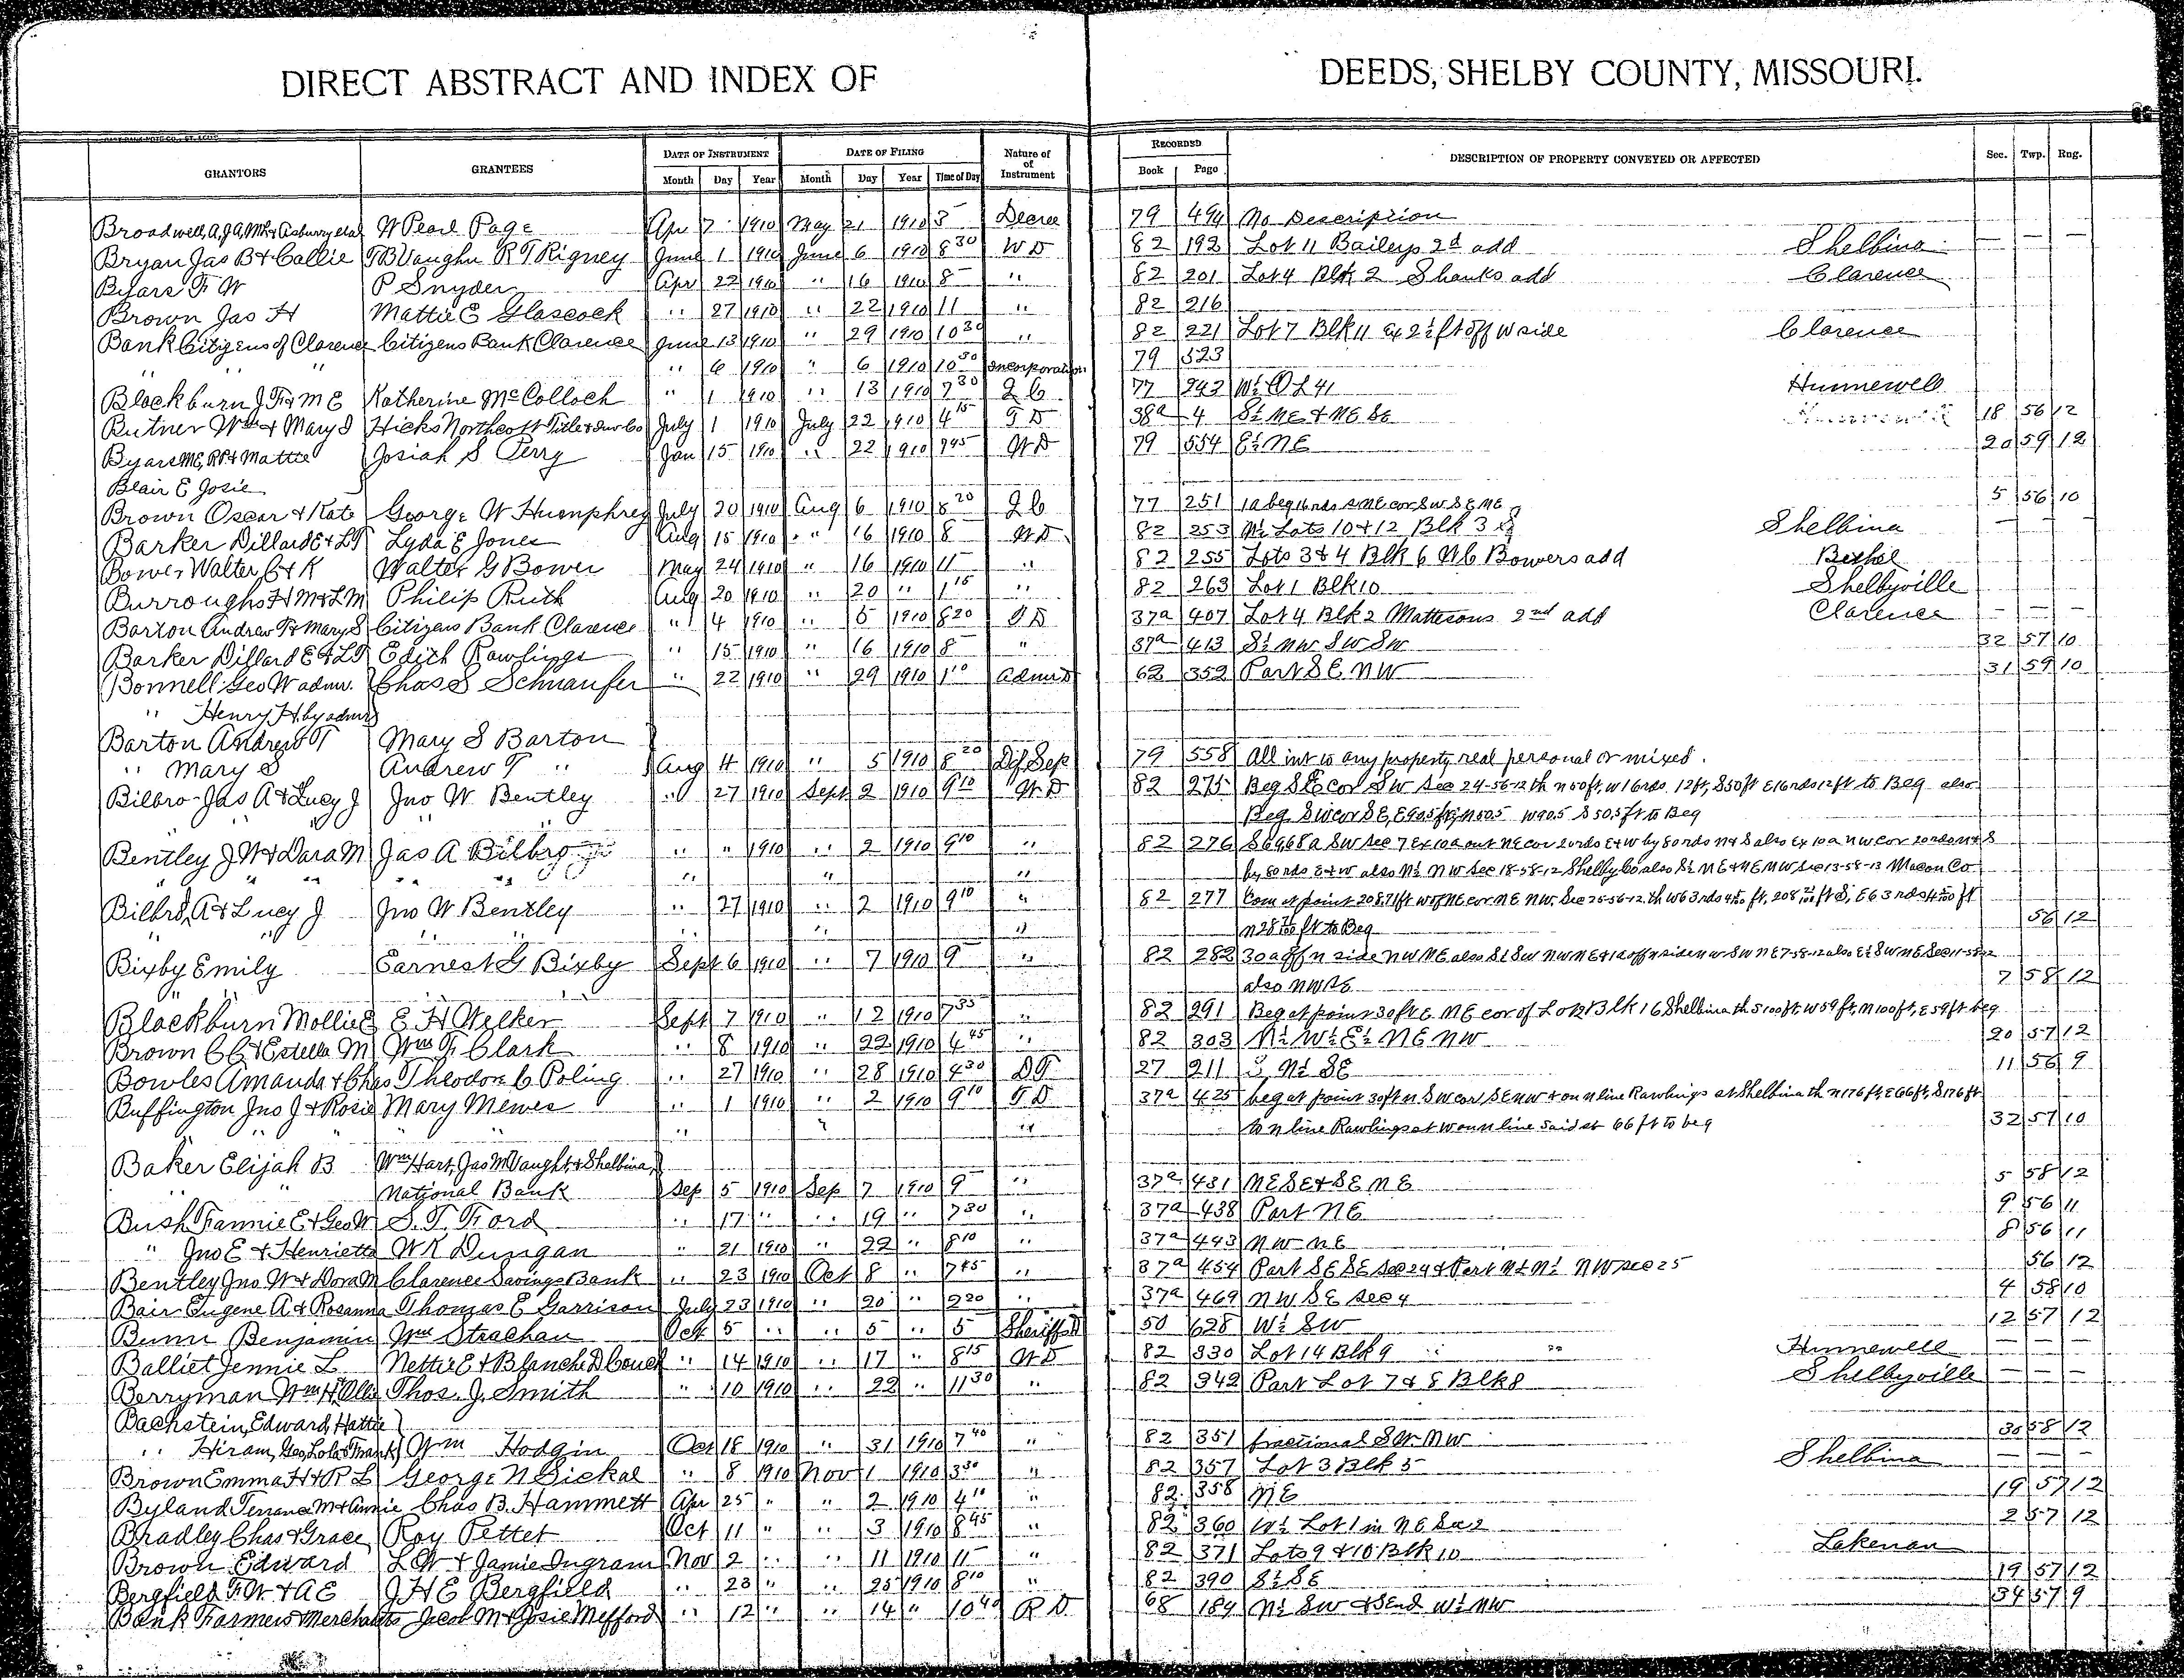 DIRECT ABSTRACT AND INDEX OF DEEDS, SHELBY COUNTY, MISSOURI.
GRANTORS GRANTEES DATE OF INSTRUMENT DATE OF FILING Nature of of Instrument RECORDED DESCRIPTION OF PROPERTY CONVEYED OR AFFECTED Sec. Twp. Rng.
Month Day Year Month Day Year Time of Day Book Page
Broadwell, A, J A, Asbury etal W Pearl Page Apr 7 1910 May 21 1910 3 Decree 79 494 No Description
Bryan Jas B & Callie T B Vaughn R T Rigney June 1 1910 June 6 1910 8 30 W D 82 192 Lot 11 Baileys 2d add Shelbina — —
Byars F W P Snyder Apr 22 1910 " 16 1910 8 " 82 201 Lot 4 Blk 2 Shanks add Clarence
Brown Jas H Mattie E Glascock " 27 1910 " 22 1910 11 " 82 216
Bank Citizens of Clarence Citizens Bank Clarence June 13 1910 " 29 1910 10 30 " 82 221 Lot 7 Blk 11 Ex 2½ ft off W side Clarence
" " " 6 1910 " 6 1910 10 30 Incorporation 79 523
Blackburn J F & M E Katherine McColloch " 1 1910 " 13 1910 7 30 Q C 77 242 W½ O L 41 Hunnewell
Butner Wm & Mary J Hicks Northcott Title & Inv Co July 1 1910 July 22 1910 4 15 T D 38a 4 S½ NE & NE SE 18 56 12
Byars M E, R P & Mattie Josiah S Perry Jan 15 1910 " 22 1910 7 45 W D 79 554 E½ NE 20 59 12
Blair E Josie
Brown Oscar & Kate George W Humphrey July 20 1910 Aug 6 1910 8 20 Q C 77 251 1a beg 16 rds S NE cor SW SE NE 5 56 10
Barker Dillard E & L T Lyda E Jones Aug 15 1910 " 16 1910 8 W D 82 253 N½ Lots 10 & 12 Blk 3 Shelbina —
Bower Walter C & K Walter G Bower May 24 1910 " 16 1910 11 " 82 255 Lots 3 & 4 Blk 6 W C Bowers add Bethel
Burroughs H M & L M Philip Ruth Aug 20 1910 " 20 " 1 15 " 82 263 Lot 1 Blk 10 Shelbyville
Barton Andrew T & Mary S Citizens Bank Clarence " 4 1910 " 5 1910 8 20 T D 37a 407 Lot 4 Blk 2 Mattesons 2nd add Clarence — — —
Barker Dillard E & L T Edith Rawlings " 15 1910 " 16 1910 8 " 37a 413 S½ NW SW SW 32 57 10
Bonnell Geo W admr. Chas S Schnaufer " 22 1910 " 29 1910 1 10 Adm D 62 352 Part SE NW 31 59 10
" Henry H. by admr
Barton Andrew T Mary S Barton
" Mary S Andrew T " Aug 4 1910 " 5 1910 8 20 Df Sep 79 558 All int to any property real personal or mixed.
Bilbro Jas A & Lucy J Jno W Bentley " 27 1910 Sept 2 1910 9 10 W D 82 275 Beg SE cor SW Sec 24-56-12 th N 50ft, W 16rds, 12ft, S50ft E16rds12ft to Beg also
Beg. SW cor SE, E90.5 ft, N 50.5 W90.5 S 50.5 ft to Beg
Bentley J W & Dora M Jas A Bilbro " " 1910 " 2 1910 9 10 " 82 276 S 69.68a SW Sec 7 Ex 10a out NE cor 20rds E & W by 80 rds N & S also Ex 10a NW cor 20rds N & S
" " " " by 80 rds E & W also N½ NW Sec 18-58-12 Shelby Co also S½ NE & NE NW Sec 13-58-13 Macon Co
Bilbro, A & Lucy J Jno W Bentley " 27 1910 " 2 1910 9 10 " 82 277 Com at point 208.71ft W of NE cor NE NW Sec 25-56-12 th W 63 rds ft, 208 ft S, E 63 rds ft
" " " " ft to Beg 56 12
Bixby Emily Earnest G Bixby Sept 6 1910 " 7 1910 9 " 82 282 30a off N side NW NE also NW NE & 1a off N side NW SW NE 7-58-12 also E½ SW NE Sec 11-58-12
also NW SE 7 58 12
Blackburn Mollie E E H Welker Sept 7 1910 " 12 1910 7 35 " 82 291 Beg at point 30 ft E NE cor of Lot Blk 16 Shelbina th S 100 ft, W 59 ft, N 100 ft, E 59 ft beg
Brown C C & Estella M Wm F Clark " 8 1910 " 22 1910 4 45 " 82 303 N½ W½ E½ NE NW 20 57 12
Bowles Amanda & Chas Theodore C Poling " 27 1910 " 28 1910 4 30 D T 27 211 N½ SE 11 56 9
Buffington Jno J & Rosie Mary Mewes " 1 1910 " 2 1910 9 10 T D 37a 425 beg at point 30ft N SW cor SE NW & on N line Rawlings st Shelbina th N 176 ft, E 66 ft, S 176 ft
" " " " " to N line Rawlings st W on N line said st 66 ft to beg 32 57 10
Baker Elijah B Wm Hart, Jas M Vaught, & Shelbina
National Bank Sep 5 1910 Sep 7 1910 9 " 37a 431 NE SE & SE NE 5 58 12
Bush Fannie E & Geo W S. T. Ford " 17 " " 19 " 7 30 " 37a 438 Part NE 9 56 11
" Jno E & Henrietta W R Dungan " 21 1910 " 22 " 8 10 " 37a 443 NW NE 8 56 11
Bentley Jno W & Dora M Clarence Savings Bank " 23 1910 Oct 8 " 7 45 " 37a 454 Part SE SE Sec 24 & Part N½ N½ NW Sec 25 56 12
Bair Eugene A & Rosanna Thomas E Garrison July 23 1910 " 20 " 2 20 " 37a 469 NW SE Sec 4 4 58 10
Bunn Benjamin Wm Strachan Oct 5 " " 5 " 5 Sheriff D 50 628 W½ SW 12 57 12
Balliet Jennie L Nettie E & Blanche D Couch " 14 1910 " 17 " 8 15 W D 82 330 Lot 14 Blk 9 " " Hunnewell — —
Berryman Wm H, Ollie Thos. J. Smith " 10 1910 " 22 " 11 30 " 82 342 Part Lot 7 & 8 Blk 8 Shelbyville — — —
Bachstein, Edward, Hattie
" Hiram, Geo, Lola & Frank Wm Hodgin Oct 18 1910 " 31 1910 7 40 " 82 351 fractional SW NW 30 58 12
Brown Emma H & R L George N Sickal " 8 1910 Nov 1 1910 3 30 " 82 357 Lot 3 Blk 5 Shelbina — —
Byland Terrance M & Annie Chas B. Hammett Apr 25 " " 2 1910 4 10 " 82 358 NE 19 57 12
Bradley Chas & Grace Roy Pettet Oct 11 " " 3 1910 8 45 " 82 360 W½ Lot 1 in NE Sec 2 2 57 12
Brown Edward L W & Jamie Ingram Nov 2 " " 11 1910 11 " 82 371 Lots 9 & 10 Blk 10 Lakenan
Bergfield F. W. & A E J H E Bergfield " 23 " " 25 1910 8 10 " 82 390 S½ SE 19 57 12
Bank Farmers Merchants Jacob M & Josie Mefford " 12 " " 14 " 10 40 R D 68 184 N½ SW & S end W½ NW 34 57 9